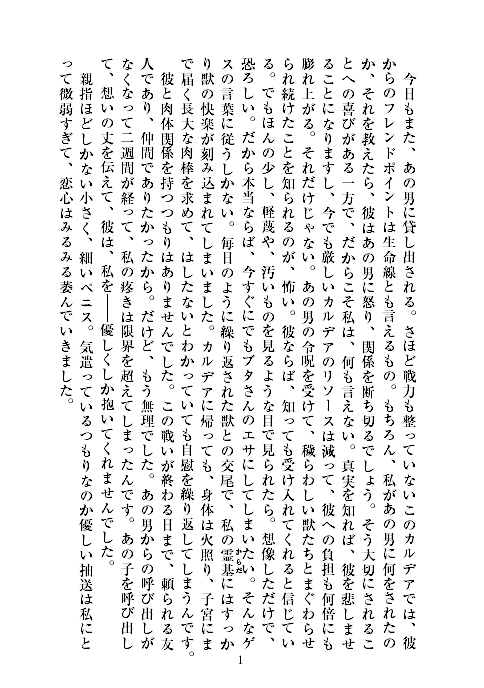 今日もまた、あの男に貸し出される。さほど戦力も整っていないこのカルデアでは、彼
からのフレンドポイントは生命線とも言えるもの。もちろん、私があの男に何をされたの
か、それを教えたら、彼はあの男に怒り、関係を断ち切るでしょう。そう大切にされるこ
とへの喜びがある一方で、だからこそ私は、何も言えない。真実を知れば、彼を悲しませ
ることになりますし、今でも厳しいカルデアのリソースは減って、彼への負担も何倍にも
膨れ上がる。それだけじゃない。あの男の令呪を受けて、穢らわしい獣たちとまぐわらせ
られ続けたことを知られるのが、怖い。彼ならば、知っても受け入れてくれると信じてい
る。でもほんの少し、軽蔑や、汚いものを見るような目で見られたら。想像しただけで、
恐ろしい。だから本当ならば、今すぐにでもブタさんのエサにしてしまいたい。そんなゲ
スの言葉に従うしかない。毎日のように繰り返された獣との交尾で、私の霊基にはすっか
り獣の快楽が刻み込まれてしまいました。カルデアに帰っても、身体は火照り、子宮にま
で届く長大な肉棒を求めて、はしたないとわかっていても自慰を繰り返してしまうんです。
彼と肉体関係を持つつもりはありませんでした。この戦いが終わる日まで、頼られる友
人であり、仲間でありたかったから。だけど、もう無理でした。あの男からの呼び出しが
なくなって二週間が経って、私の疼きは限界を超えてしまったんです。あの子を呼び出し
て、想いの丈を伝えて、彼は、私を――優しくしか抱いてくれませんでした。
親指ほどしかない小さく、細いペニス。気遣っているつもりなのか優しい抽送は私にと
って微弱すぎて、恋心はみるみる萎んでいきました。
1